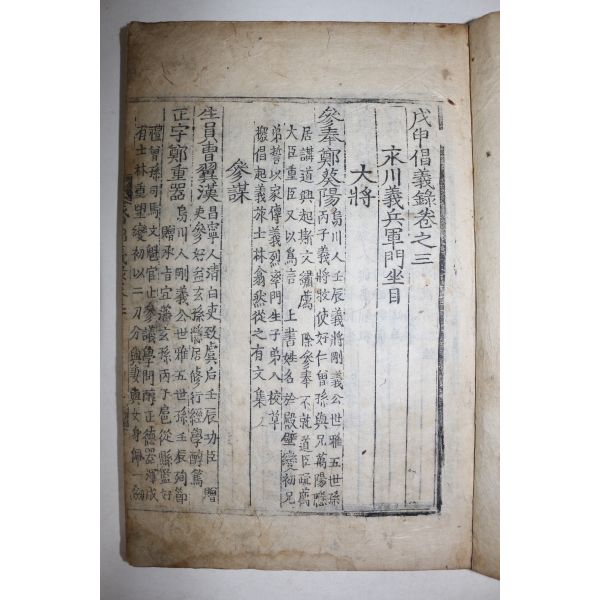 戊申倡義錄卷之三
永川義兵軍門坐目
大將
參奉鄭葵陽 烏川人壬辰義將剛義公世雅五世孫
丙子義將牧使好仁曾孫與兄萬陽隱
居講道興起斯文繡薦 除參奉不就道臣
大臣重臣又以爲言 上書姓名於殿壁變初兄
弟誓以家傳義烈率門生子弟入校草
檄倡起義旅士林翕然從之有文集
參謀
生員曺翼漢 昌寧人淸白吏致虞后壬辰功臣 贈
吏參好益玄孫隱居修行經學醇篤
正字鄭重器 烏川人剛義公世雅五世孫壬辰殉節
贈承旨宜藩玄孫丙子扈從縣監好
禮曾孫司馬文魁官止參議學問醇正德器渾成
有士林重望變初以二刀分與妻與女身佩